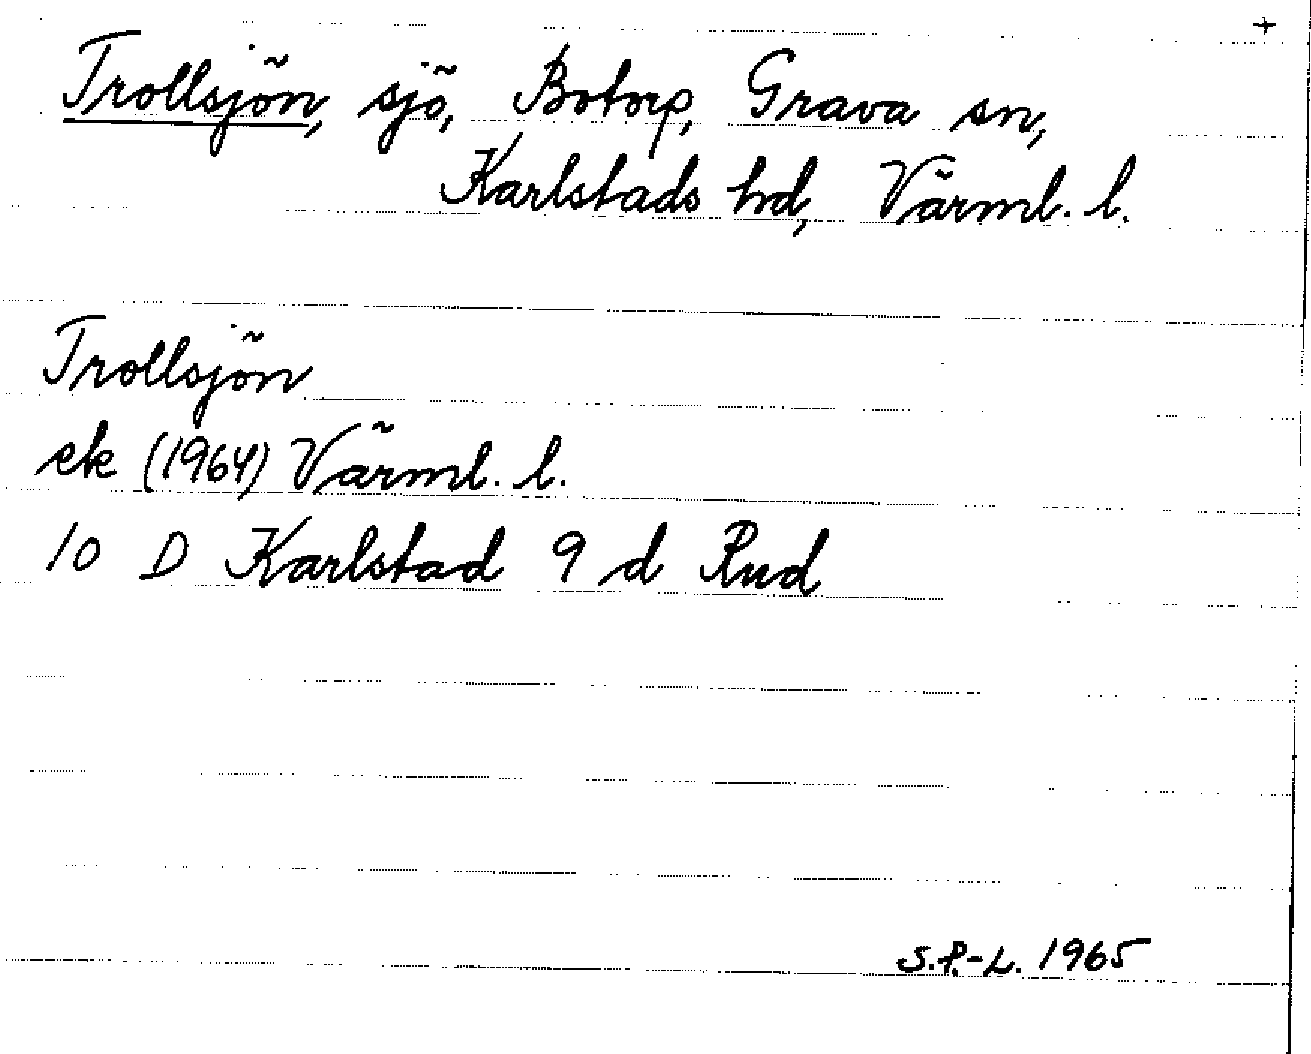 +
Trollsjön, sjö, Botorp, Grava sn,
Karlstads hd, Värml. l.
Trollsjön
ek (1964) Värml. l.
10 D Karlstad 9 d Rud
S.P.-L. 1965